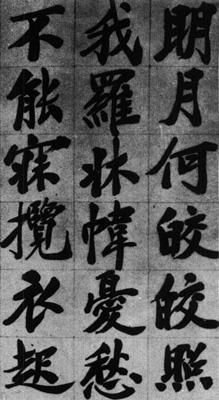 明月何皎皎照
我羅牀幃憂愁
不能寐攬衣起